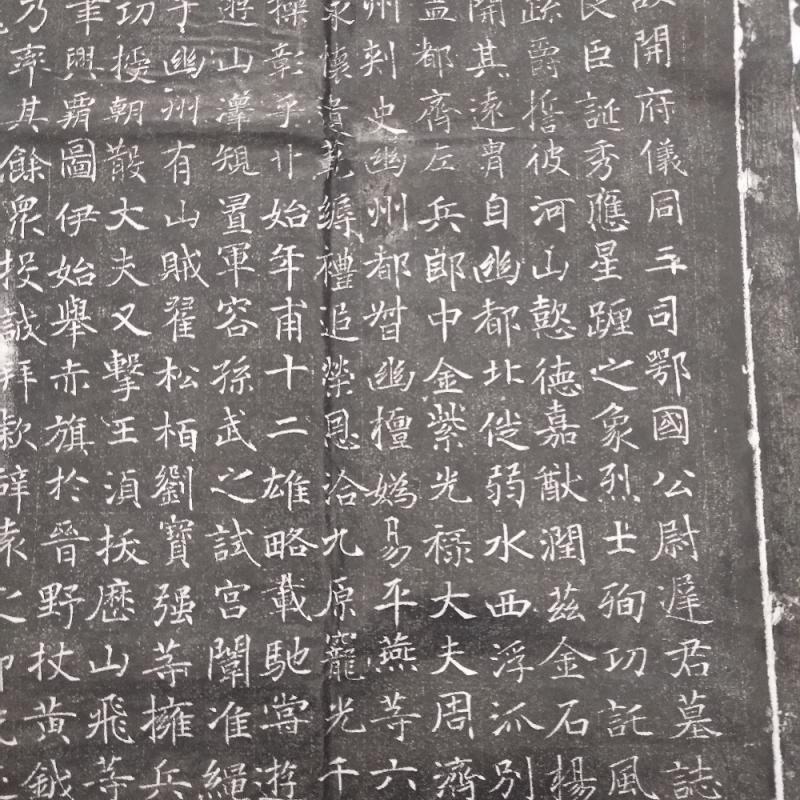 開府儀同三司鄂國公尉遲君墓誌
良臣誕秀應星躔之象烈士殉功託風
疏爵誓彼河山懿德嘉猷潤茲金石楊
開其遠冑自幽都北徙弱水西浮派別
孟都齊左兵郎中金紫光祿大夫周濟
州刺史幽州都督幽檀媯易平燕等六
永懷遺範縟禮追榮恩洽九原寵光千
操彰乎丱始年甫十二雄略載馳嘗遊
遊山澤規置軍容孫武之試宮闈准繩
于幽州有山賊翟松柏劉寶强等擁兵
功授朝散大夫又擊王湏拔歷山飛等
聿興霸圖伊始舉赤旗於晉野杖黃鉞
乃率其餘衆投誠拜款辟袁之